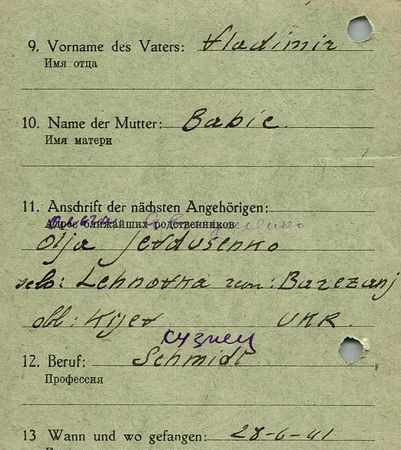 9. Vorname des Vaters: Vladimir
Имя отца
10. Name der Mutter: Babic.
Имя матери
11. Anschrift der nächsten Angehörigen:
Адрес ближайших родственников
Olja Jevdušenko
selo: Lehnovka : Barezanj
obl: Kijev UKR.
кузнец
12. Beruf: Schmidt
Профессия
13 Wann und wo gefangen: 28-6-41